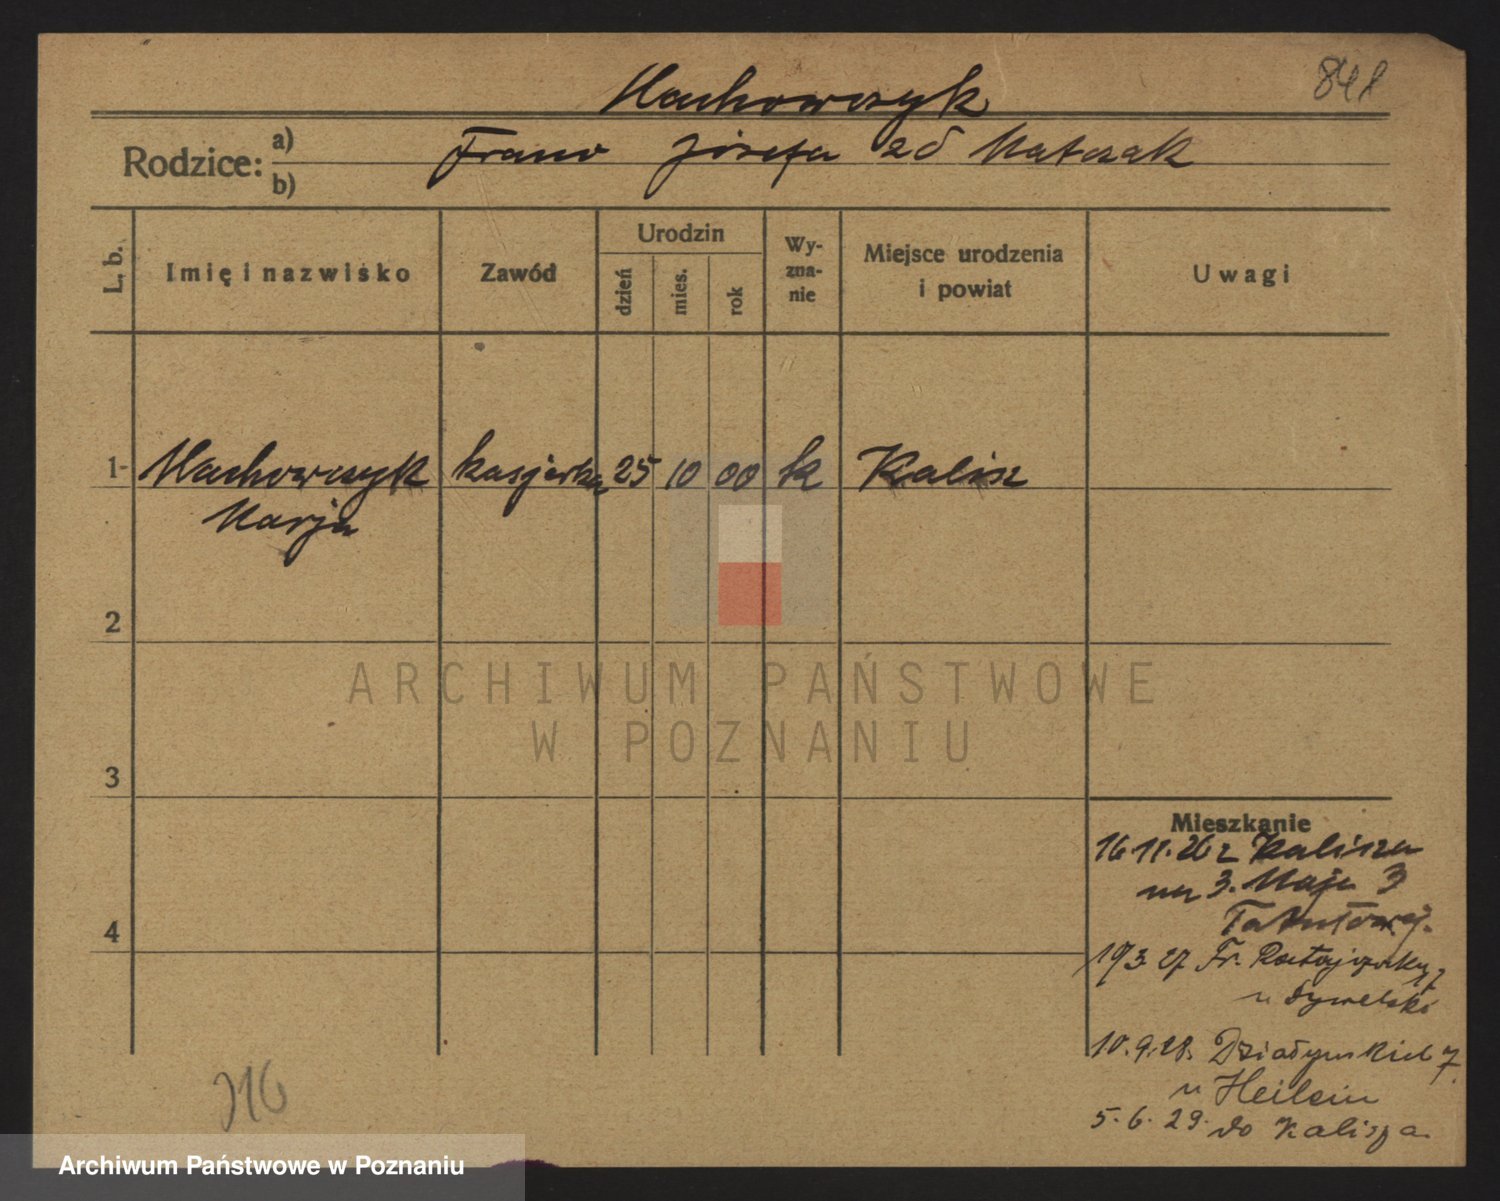 841
Machowczyk
Rodzice: a) b)
Franc Józefa zd Matczak
L. b.
Imię i nazwisko
Zawód
Urodzin
dzień
mies.
rok
Wy-
zna-
nie
Miejsce urodzenia
i powiat
Uwagi
1- Machowczyk kasjerka 25 10 00 k Kalisz
Marja
2
3
4
ARCHIWUM PAŃSTWOWE
W POZNANIU
Mieszkanie
16.11.26 z Kalisza
na 3. Maja 3
19 3 27 Fr. Ratajczaka 7
u
10.9.28. Działyńskich 7
u
5.6.29. do Kalisza
316
Archiwum Państwowe w Poznaniu